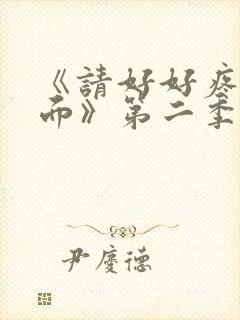 《請好好疼
而》第二季
尹慶德